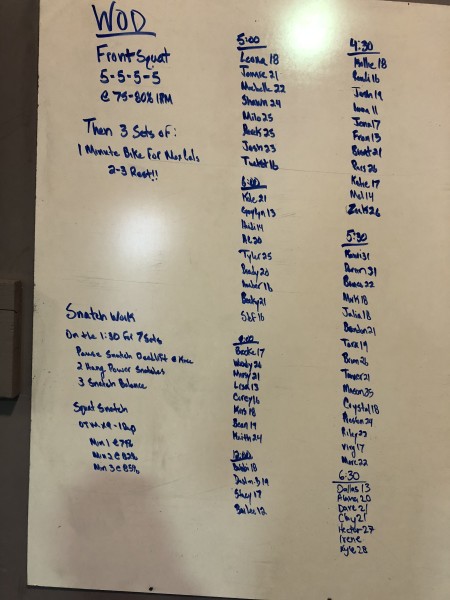 WOD
Front Squat
5-5-5-5
@ 75-80% 1RM
Then 3 Sets of:
1 Minute Bike For Max Cals
2-3 Rest!!
Snatch Work
On the 1:30 For 7 Sets
Pause Snatch Deadlift @ Knee
2 Hang Power Snatches
3 Snatch Balance
Squat Snatch
Min 1 @ 79%
Min 2 @ 82%
Min 3 @ 85%
5:00
Leona 18
21
Michelle 22
Shawn 24
Milo 25
25
Josh 23
16
6:00
Kyle 21
13
14
20
Tyler 25
Brady 20
Amber 16
Becky 21
Stef 16
17
Woody 26
Missy 21
Lisa 13
Corey 16
Kris 18
Bean 19
Keith 24
12:00
Bobbi 18
Dustin B 19
Stacy 17
Bailee 12
4:30
Hollie 18
16
Josh 19
11
Jenn 17
Fran 13
21
26
Katie 17
Mel 14
Zack 26
5:30
31
Daron 31
22
Mark 18
Julia 18
Brandon 21
Tara 19
Brian 26
Tanner 21
Mason 25
Crystal 18
Preston 24
Riley 22
17
Marc 22
6:30
Dallas 13
Alana 20
Dave 21
Clay 21
Hector 27
Irene
Kyle 28